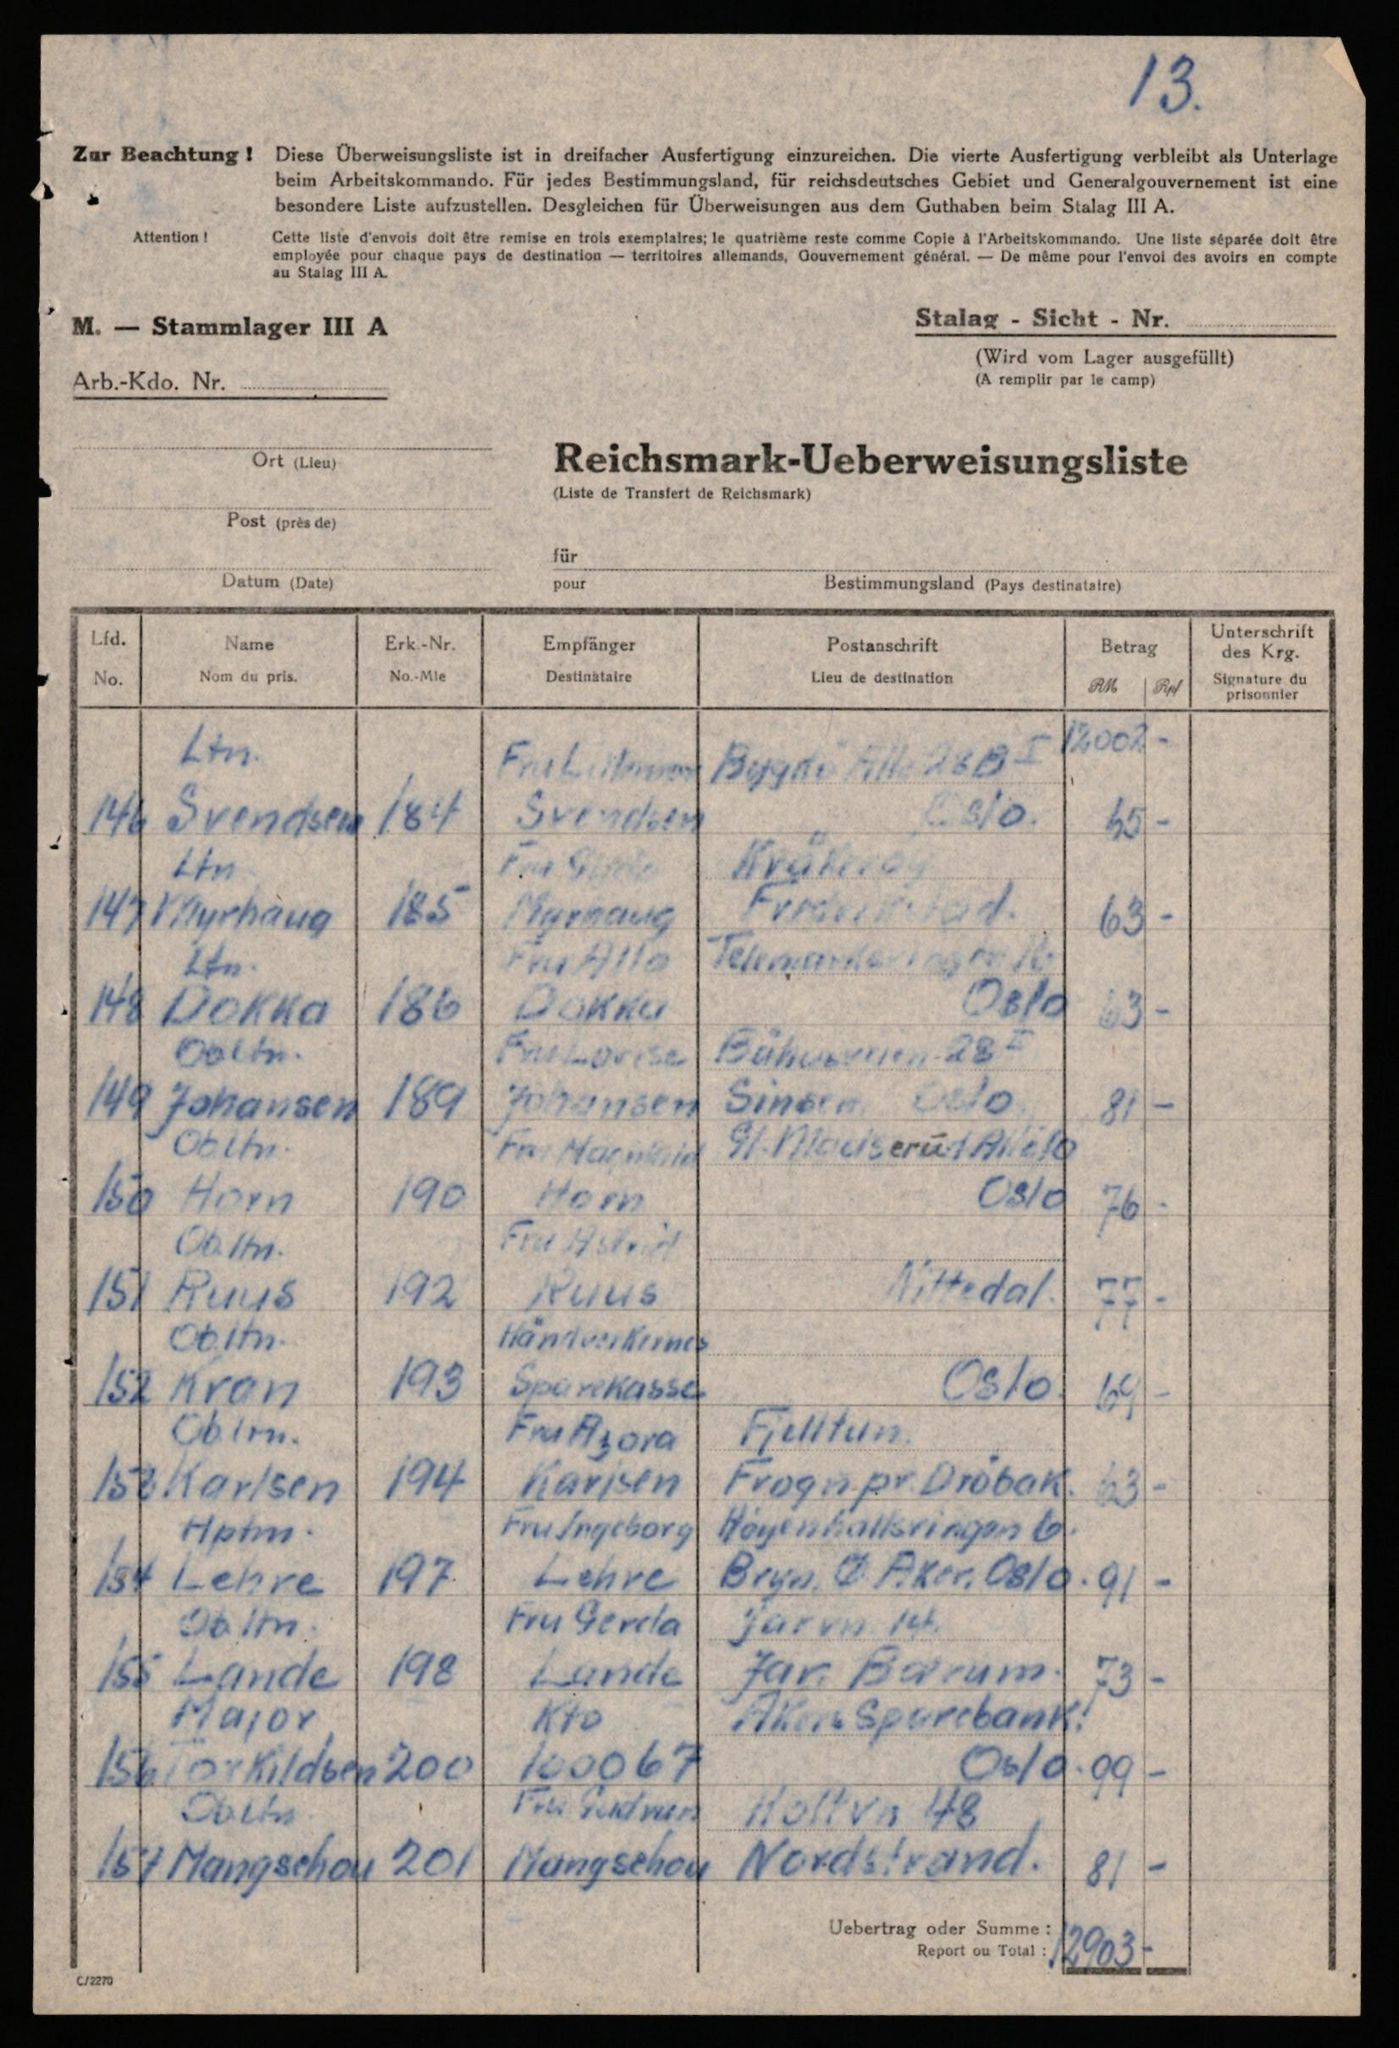 13.
Zur Beachtung! Diese Überweisungsliste ist in dreifacher Ausfertigung einzureichen. Die vierte Ausfertigung verbleibt als Unterlage
beim Arbeitskommando. Für jedes Bestimmungsland, für reichsdeutsches Gebiet und Generalgouvernement ist eine
besondere Liste aufzustellen. Desgleichen für Überweisungen aus dem Guthaben beim Stalag III A.
Attention! Cette liste d'envois doit être remise en trois exemplaires; le quatrième reste comme Copie à l'Arbeitskommando. Une liste séparée doit être
employée pour chaque pays de destination — territoires allemands, Gouvernement général. — De même pour l'envoi des avoirs en compte
au Stalag III A.
M. — Stammlager III A
Stalag - Sicht - Nr.
(Wird vom Lager ausgefüllt)
(A remplir par le camp)
Arb.-Kdo. Nr.
Ort (Lieu)
Post (près de)
Datum (Date)
Reichsmark-Ueberweisungsliste
(Liste de Transfert de Reichsmark)
für
pour Bestimmungsland (Pays destinataire)
Lfd. Name Erk.-Nr. Empfänger Postanschrift Betrag Unterschrift des Krg.
No. Nom du pris. No.-Mle Destinataire Lieu de destination RM Rpf Signature du prisonnier
Ltn. Fru Bygdø Alle 28B I 12002 -
146 Svendsen 184 Svendsen Oslo. 65 -
Ltn. Fru Kråkerøy
147 Myrhaug 185 Myrhaug Fredrikstad. 63 -
Ltn. Fru
148 Dokka 186 Dokka Oslo 63 -
Obltn. Fru Lovise 28 II
149 Johansen 189 Johansen Sinsen Oslo 81 -
Obltn. Fru Magnhild Gl. Madserud Alle 10
150 Horn 190 Horn Oslo 76 -
Obltn. Fru Astrid
151 Ruus 192 Ruus Nittedal. 77 -
Obltn. Håndverkernes
152 Kran 193 Sparekasse Oslo. 69 -
Obltn. Fru Azora Fjelltun.
153 Karlsen 194 Karlsen Frogn. pr. Dröbak. 63 -
Hptm. Fru Ingeborg Höyenhallsringen 6.
154 Lehre 197 Lehre Bryn. Ö. Aker. Oslo. 91 -
Obltn. Fru Gerda Jarvn. 14.
155 Lande 198 Lande Jar. Bærum. 73 -
Major Kto Akers Sparebank.
156 Torkildsen 200 100067 Oslo. 99 -
Obltn. Fru Gudrun Holtvn 48
157 Mangschou 201 Mangschou Nordstrand. 81 -
Uebertrag oder Summe:
Report ou Total: 12903 -
C/2270